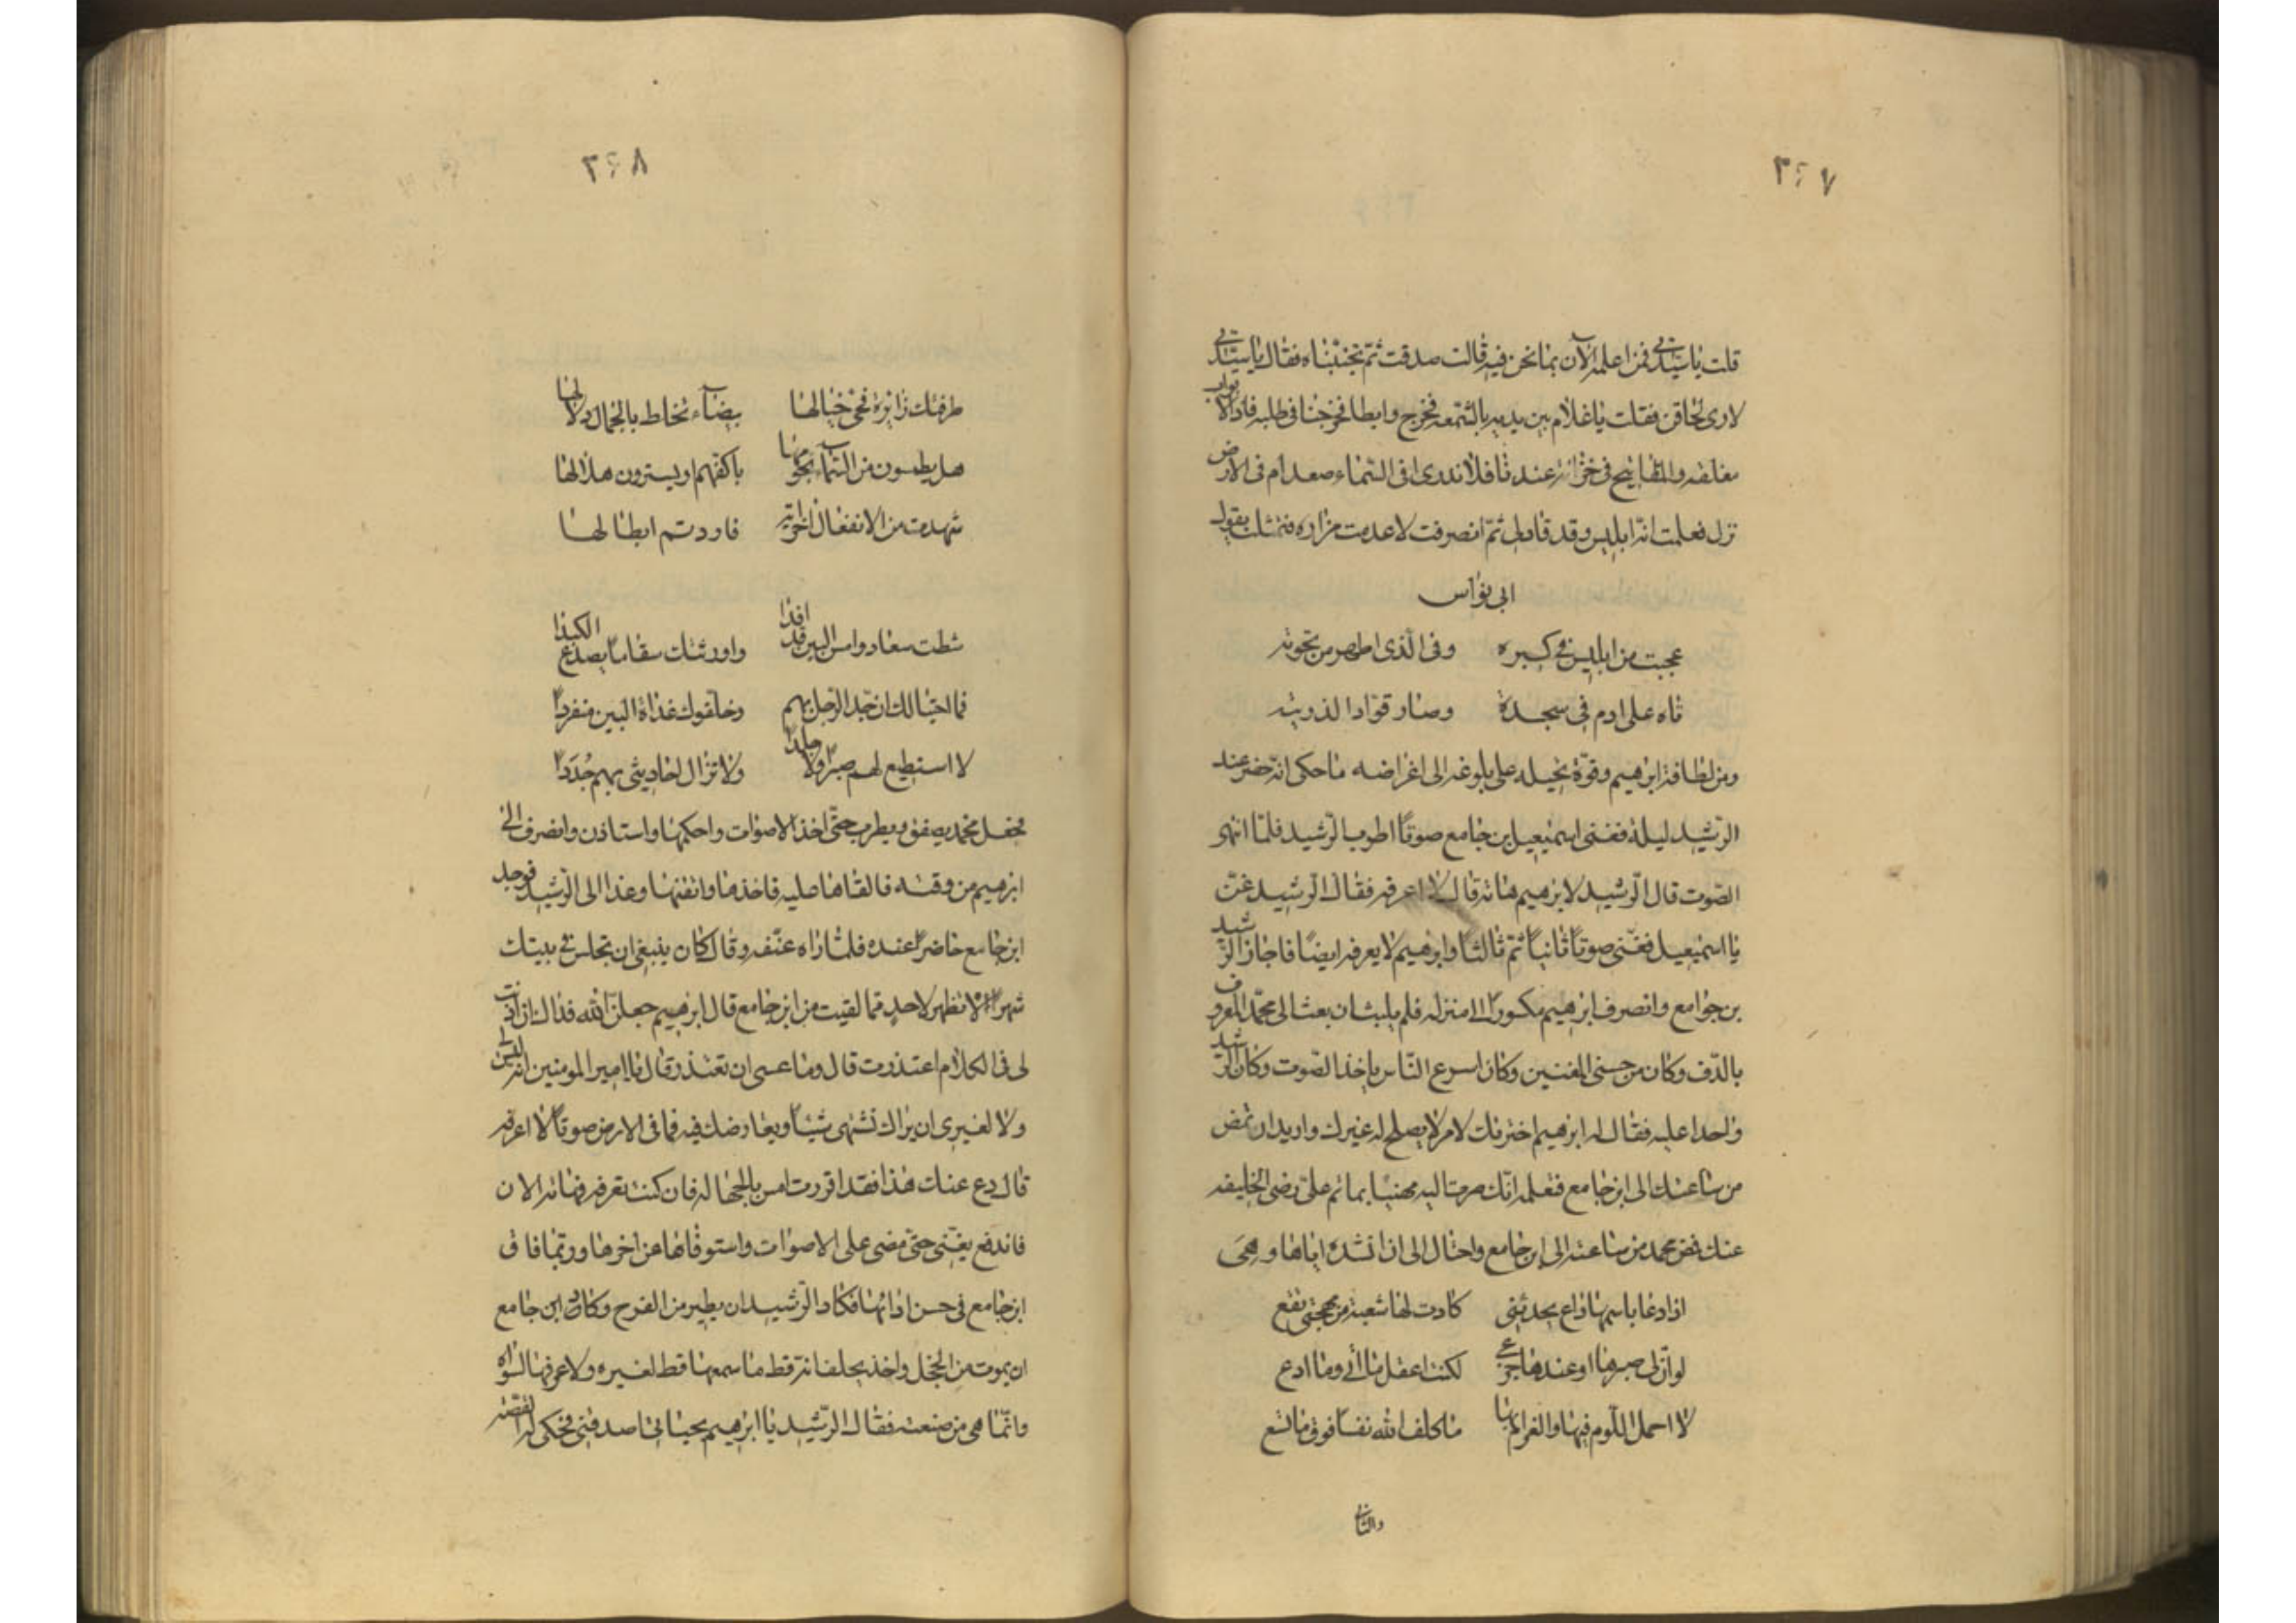 ٣٤٧
قلت يا سيدتي فمن اعلمه الآن بما نحن فيه قالت صدقت ثم تجنبناه فقال يا سيدتي
لا رى لحاقن فقلت يا غلام بين يديه بالشمعه فخرج وابطا فخرجنا في طلبه فاذا الابواب
مغلقه والمفاتيح في خزانه عندنا فلا ندرى افى السماء صعد ام فى الارض
نزل فعلمت انه ابليس وقد قاد لى ثم انصرفت لا عدمت مزاره فتمثلت بقول
ابى نواس
عجبت من ابليس فى كبره وفى الذى اظهر من نخوته
تاه على ادم فى سجدة وصار قوادا لذريته
ومن لطافة ابرهيم وقوة تحيله على بلوغه الى اغراضه ما حكى انه حضر عند
الرشيد ليلة فغنى اسمعيل بن جامع صوتا اطرب الرشيد فلما انتهى
الصوت قال الرشيد لابرهيم هاته قال لا اعرفه فقال الرشيد غن
يا اسمعيل فغنى صوتا ثانيا ثم ثالثا وابرهيم لا يعرفه ايضا فاجاز الرشيد
بن جوامع وانصرف ابرهيم مكسورا الى منزله فلم يلبث ان بعث الى محمد المعروف
بالدف وكان من حسنى المغنين وكان اسرع الناس باخذ الصوت وكان الرشيد
واحدا عليه فقال له ابرهيم اخترتك لامر لا يصلح له غيرك واريد ان تمض
من ساعتك الى ابن جامع فتعلمه انك صرت اليه مهنيا بما تم على رضى الخليفه
عنك فمض محمد من ساعته الى ابن جامع واحتال الى ان انشده اياها وهى
اذا دعا باسمها داع يحدثنى كادت لها شعبة من مهجتى تقع
لو ان لى صبرها او عندها جزعى لكنت اعقل ما اتى وما ادع
لا احمل اللوم فيها والغرام بها ما كلف الله نفسا فوق ما تسع
والثانى
٣٤٨
طرقتك زائرة فحى خيالها بيضاء تخلط بالجمال دلالها
هل يطمسون من السماء نجومها باكفهم او يسترون هلالها
شهدت من الانفعال اخر آية فاردتم ابطالها
شطت سعاد وامس البين قد افدا واورثتك سقاما يصدع الكبدا
فما احتيالك ان جد الرحيل بهم وخلفوك غداة البين منفردا
لا استطيع لهم صبرا ولا جلدا ولا تزال احاديثى بهم جددا
فجعل محمد يصفق ويطرب حتى اخذ الاصوات واحكمها واستاذن وانصرف الى
ابرهيم من وقته فالقاها عليه فاخذها واتقنها وغدا الى الرشيد فوجد
ابن جامع حاضرا عنده فلما راه عنفه وقال كان ينبغى ان تجلس فى بيتك
شهرا لا تظهر لاحد مما لقيت من ابن جامع قال ابرهيم جعلنى الله فداك ان اذنت
لى فى الكلام اعتذرت قال وما عسى ان تعتذر قال يا امير المومنين انه ليس لى
ولا لغيرى ان يراك تشتهى شيئا ويعارضك فيه فما فى الارض صوتا لا اعرفه
قال دع عنك هذا فقد اقررت امس بالجهاله فان كنت تعرفه فهاته الان
فاندفع يغنى حتى مضى على الاصوات واستوفاها عن اخرها وربما فاق
ابن جامع فى حسن ادائها فكاد الرشيد ان يطير من الفرح وكاد ابن جامع
ان يموت من الخجل واخذ يحلف انه قط ما سمعها قط لغيره ولا عرفها لسواه
وانما هى من صنعته فقال الرشيد يا ابرهيم بحياتى اصدقنى فحكى له القصه